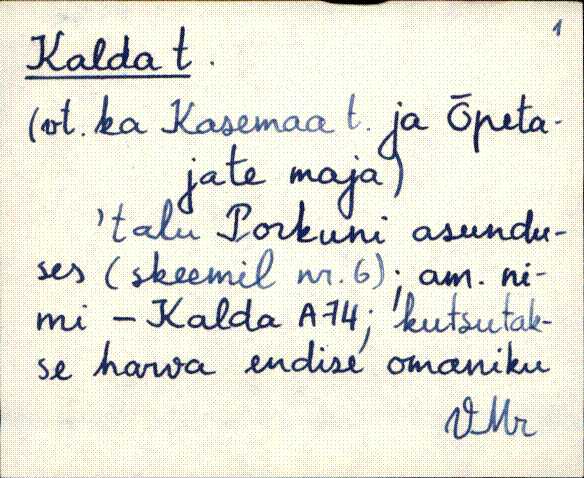 1
Kalda t.
(vt. ka Kasemaa t. ja Õpeta-
jate maja)
'talu Porkuni asundu-
ses (skeemil nr. 6); am. ni-
mi – Kalda A74; 'kutsutak-
se harva endise' omaniku
VMr